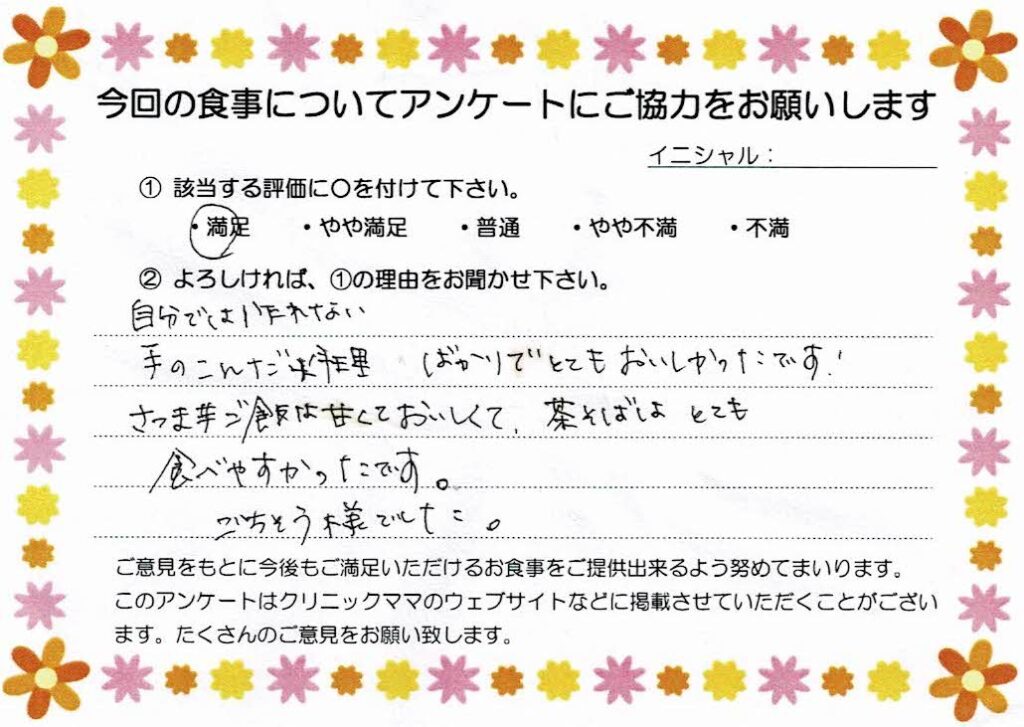 今回の食事についてアンケートにご協力をお願いします
イニシャル：
① 該当する評価に〇を付けて下さい。
・満足 ・やや満足 ・普通 ・やや不満 ・不満
② よろしければ、①の理由をお聞かせ下さい。
自分では作れない
手のこんだ料理 ばかりでとてもおいしかったです!
さつま芋ご飯は甘くておいしくて、茶そばは とても
食べやすかったです。
ごちそう様でした。
ご意見をもとに今後もご満足いただけるお食事をご提供出来るよう努めてまいります。
このアンケートはクリニックママのウェブサイトなどに掲載させていただくことがござい
ます。たくさんのご意見をお願い致します。